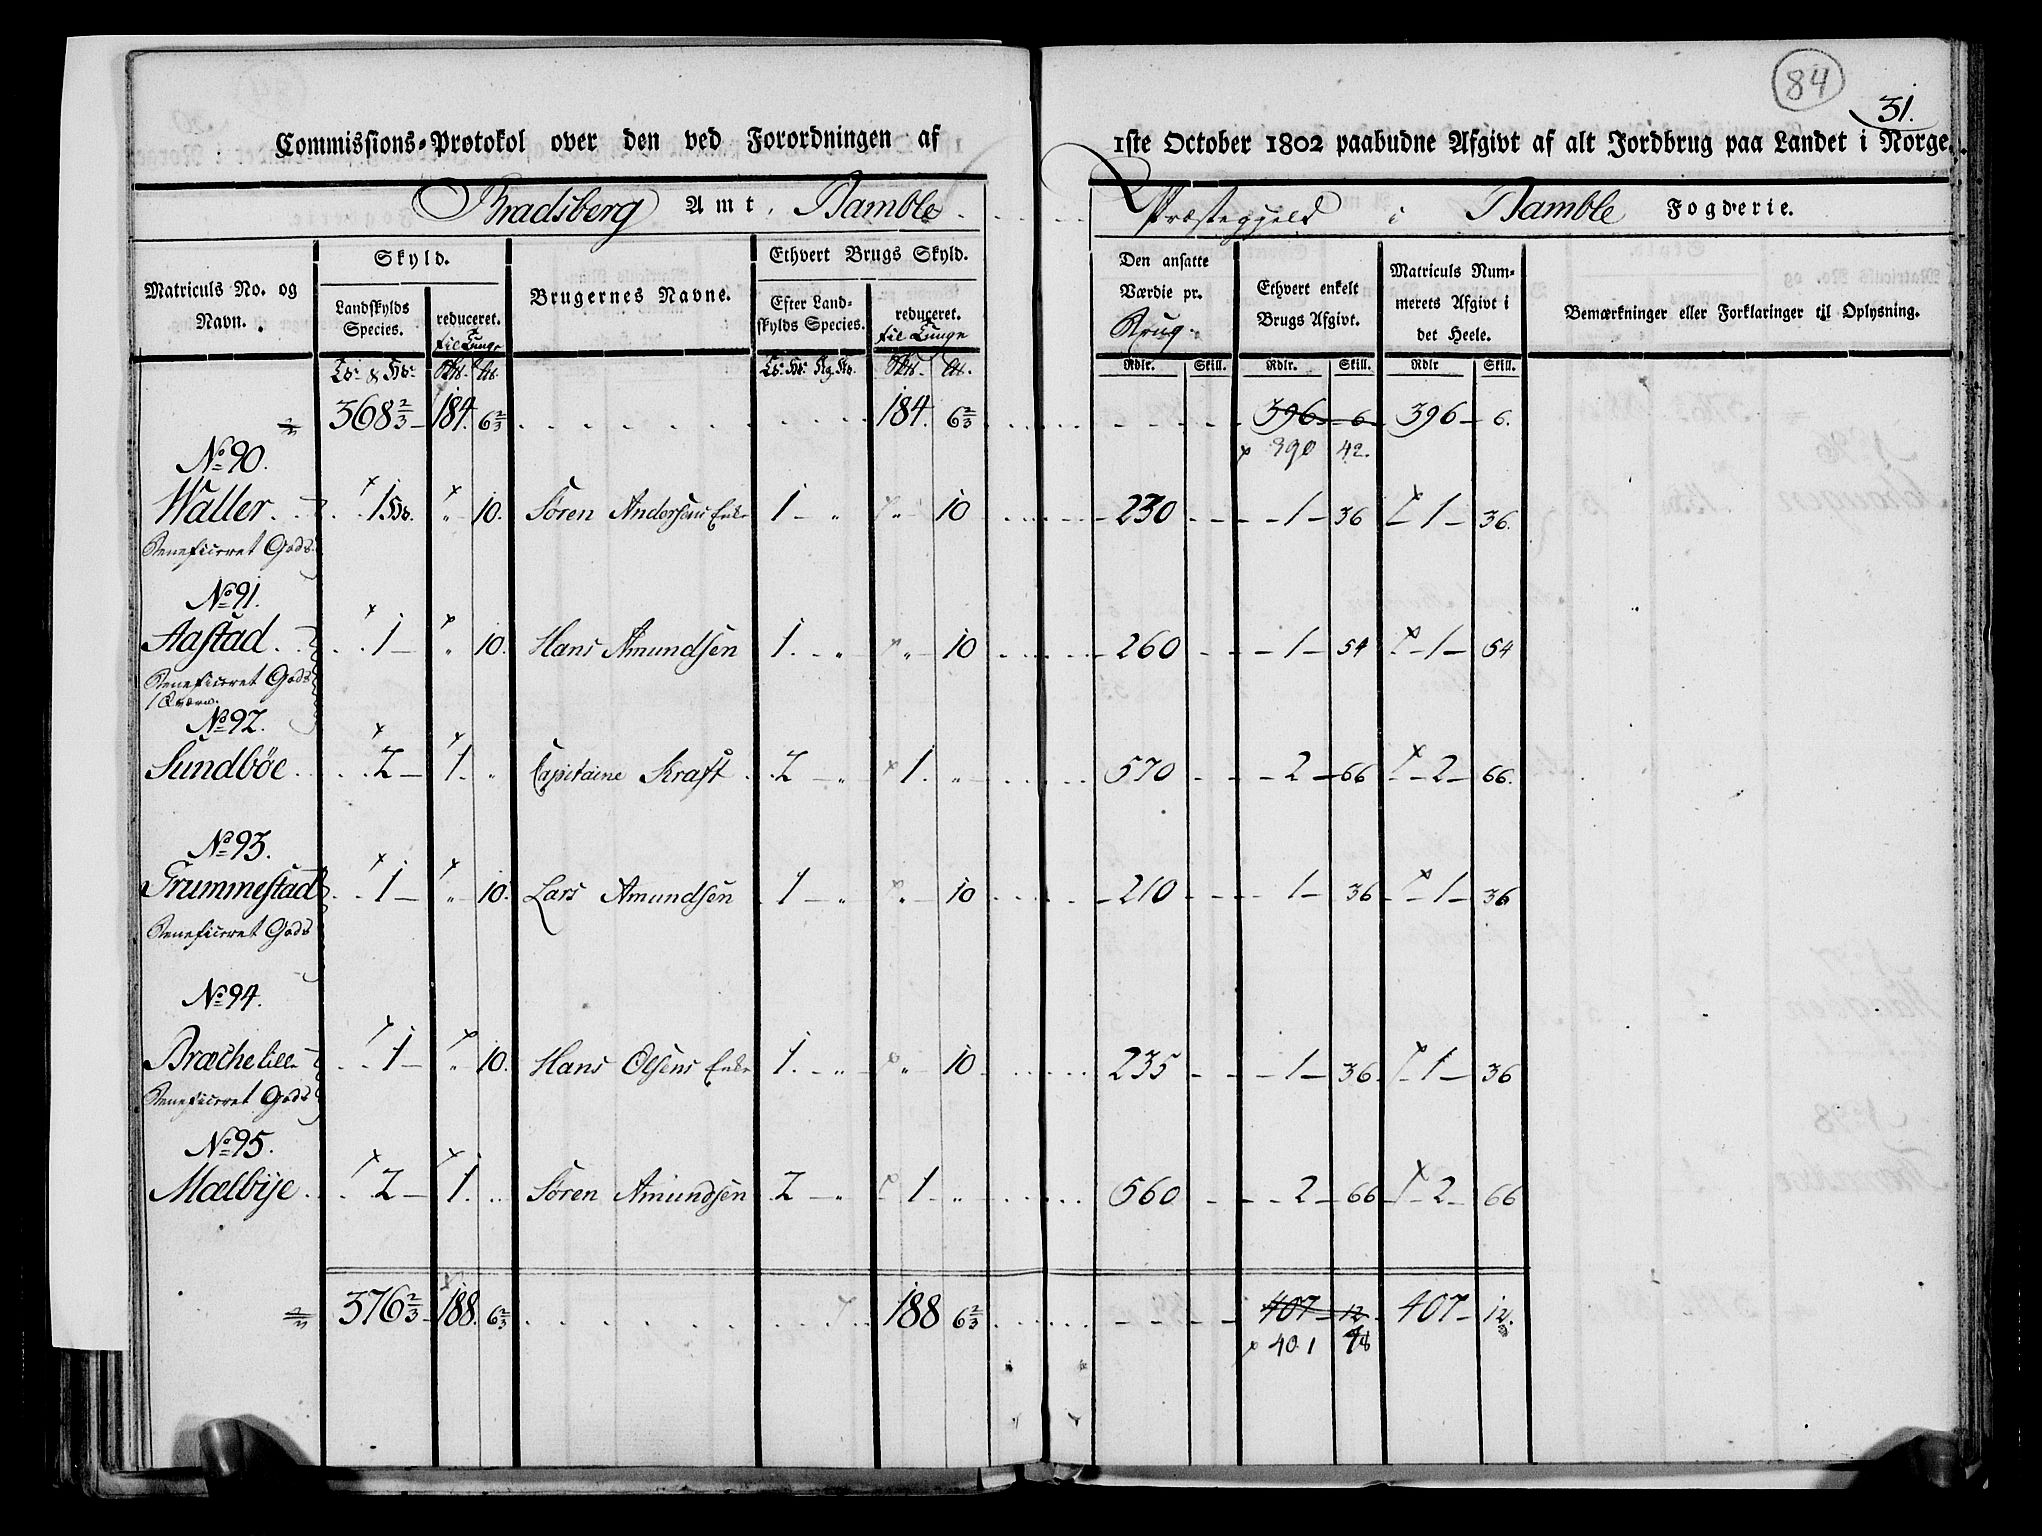 84
31.
Commissions-Protokol over den ved Forordningen af 1ste October 1802 paabudne Afgivt af alt Jordbrug paa Landet i Norge.
Bradsberg Amt, Bamble Præstegjeld i Bamble Fogderie.
Matriculs No. og Navn. Skyld. Brugernes Navne. Ethvert Brugs Skyld. Den ansatte Værdie pr. Brug Ethvert enkelt Brugs Afgivt. Matriculs Nummerets Afgivt i det Heele. Bemærkninger eller Forklaringer til Oplysning.
Landskylds Species. reduceret. til Tunge Efter Landskylds Species. reduceret. til Tunge
Rdlr. Skill. Rdlr. Skill. Rdlr Skill.
368 2/3 184. 6 2/3 184. 6 2/3 396 6 396 6.
390 42.
No 90.
Waller 1 Hb. " 10. Søren Andersens Enke 1 " " 10 230 1 36 1 36.
Beneficeret Gods
No 91.
Aastad 1 " 10. Hans Amundsen 1. " " 10 260 1 54 1 54
Beneficeret Gods
1 Qværn.
No 92.
Sundbøe 2 1. " Capitaine Kraft 2 " 1. " 570 2 66 2 66.
No 93.
Trummestad 1 " 10. Lars Amundsen 1 " " 10 210 1 36 1 36
Beneficeret Gods
No 94.
Bræchelille 1 " 10. Hans Olsens Enke 1. " " 10 235 1 36 1 36
Beneficeret Gods
No 95.
Mælbye 2 1. " Søren Amundsen 2 " 1. " 560 2 66 2 66
376 2/3 188. 6 2/3 188 6 2/3 407 12 407 12.
401 48